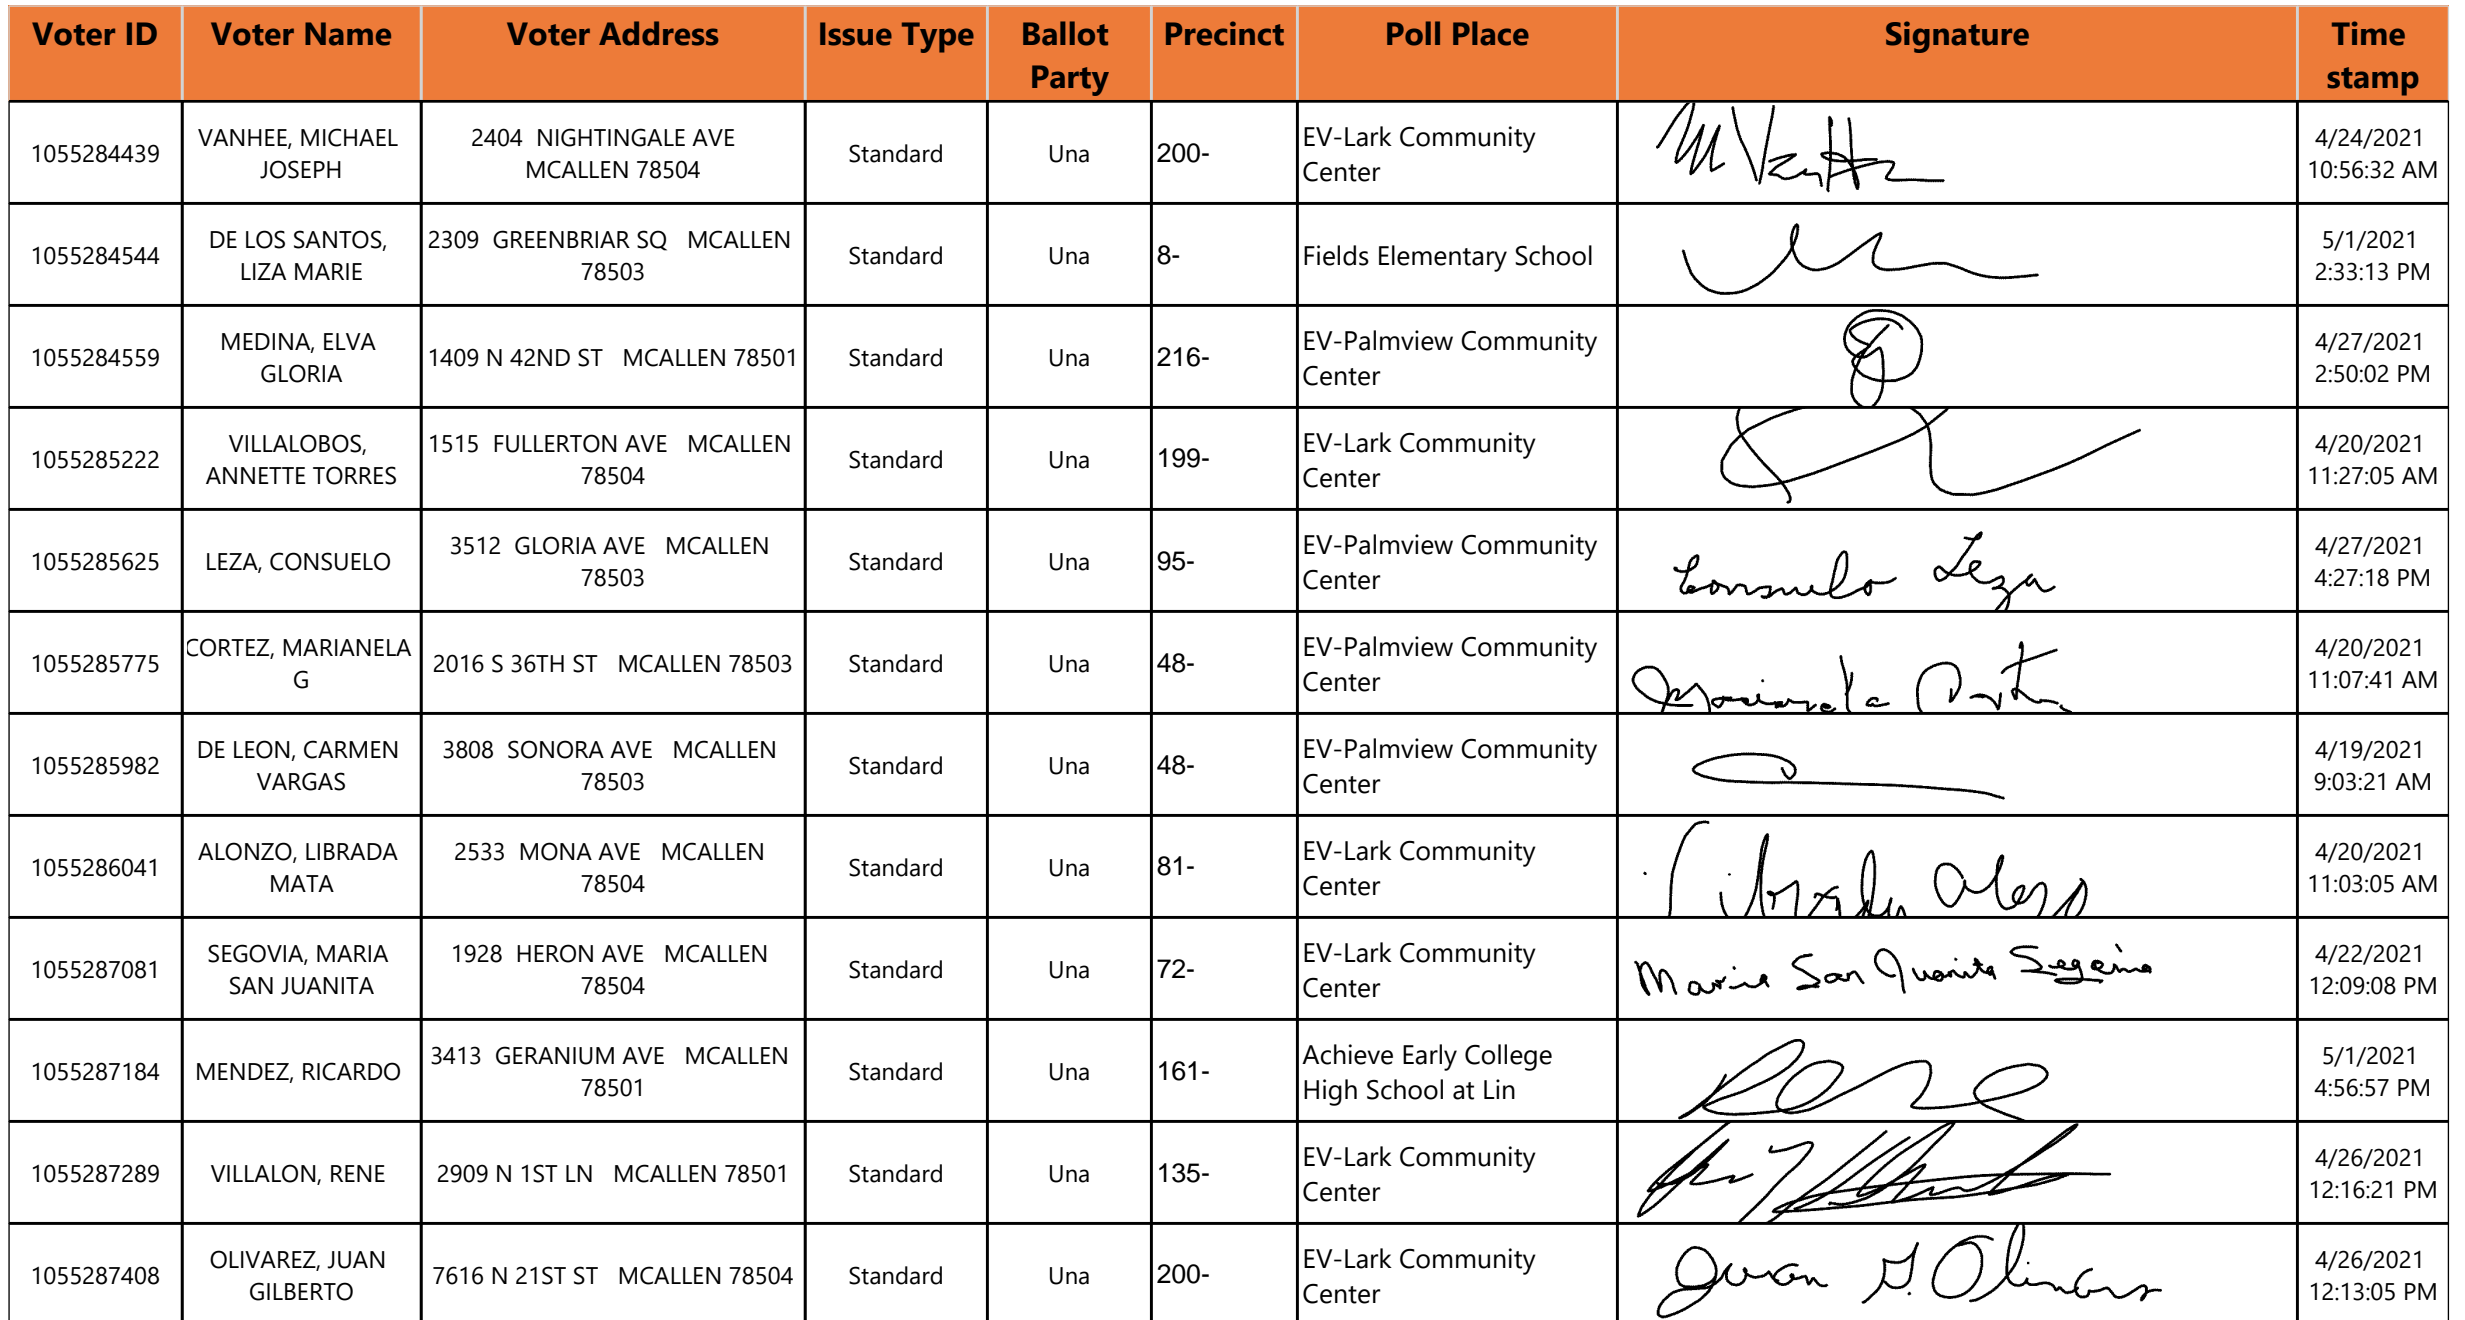 Voter ID Voter Name Voter Address Issue Type Ballot Party Precinct Poll Place Signature Time stamp
1055284439 VANHEE, MICHAEL JOSEPH 2404 NIGHTINGALE AVE MCALLEN 78504 Standard Una 200- EV-Lark Community Center 4/24/2021 10:56:32 AM
1055284544 DE LOS SANTOS, LIZA MARIE 2309 GREENBRIAR SQ MCALLEN 78503 Standard Una 8- Fields Elementary School 5/1/2021 2:33:13 PM
1055284559 MEDINA, ELVA GLORIA 1409 N 42ND ST MCALLEN 78501 Standard Una 216- EV-Palmview Community Center 4/27/2021 2:50:02 PM
1055285222 VILLALOBOS, ANNETTE TORRES 1515 FULLERTON AVE MCALLEN 78504 Standard Una 199- EV-Lark Community Center 4/20/2021 11:27:05 AM
1055285625 LEZA, CONSUELO 3512 GLORIA AVE MCALLEN 78503 Standard Una 95- EV-Palmview Community Center Consuelo Leza 4/27/2021 4:27:18 PM
1055285775 CORTEZ, MARIANELA G 2016 S 36TH ST MCALLEN 78503 Standard Una 48- EV-Palmview Community Center 4/20/2021 11:07:41 AM
1055285982 DE LEON, CARMEN VARGAS 3808 SONORA AVE MCALLEN 78503 Standard Una 48- EV-Palmview Community Center 4/19/2021 9:03:21 AM
1055286041 ALONZO, LIBRADA MATA 2533 MONA AVE MCALLEN 78504 Standard Una 81- EV-Lark Community Center 4/20/2021 11:03:05 AM
1055287081 SEGOVIA, MARIA SAN JUANITA 1928 HERON AVE MCALLEN 78504 Standard Una 72- EV-Lark Community Center Maria San Juanita Segovia 4/22/2021 12:09:08 PM
1055287184 MENDEZ, RICARDO 3413 GERANIUM AVE MCALLEN 78501 Standard Una 161- Achieve Early College High School at Lin 5/1/2021 4:56:57 PM
1055287289 VILLALON, RENE 2909 N 1ST LN MCALLEN 78501 Standard Una 135- EV-Lark Community Center 4/26/2021 12:16:21 PM
1055287408 OLIVAREZ, JUAN GILBERTO 7616 N 21ST ST MCALLEN 78504 Standard Una 200- EV-Lark Community Center Juan G. Olivarez 4/26/2021 12:13:05 PM